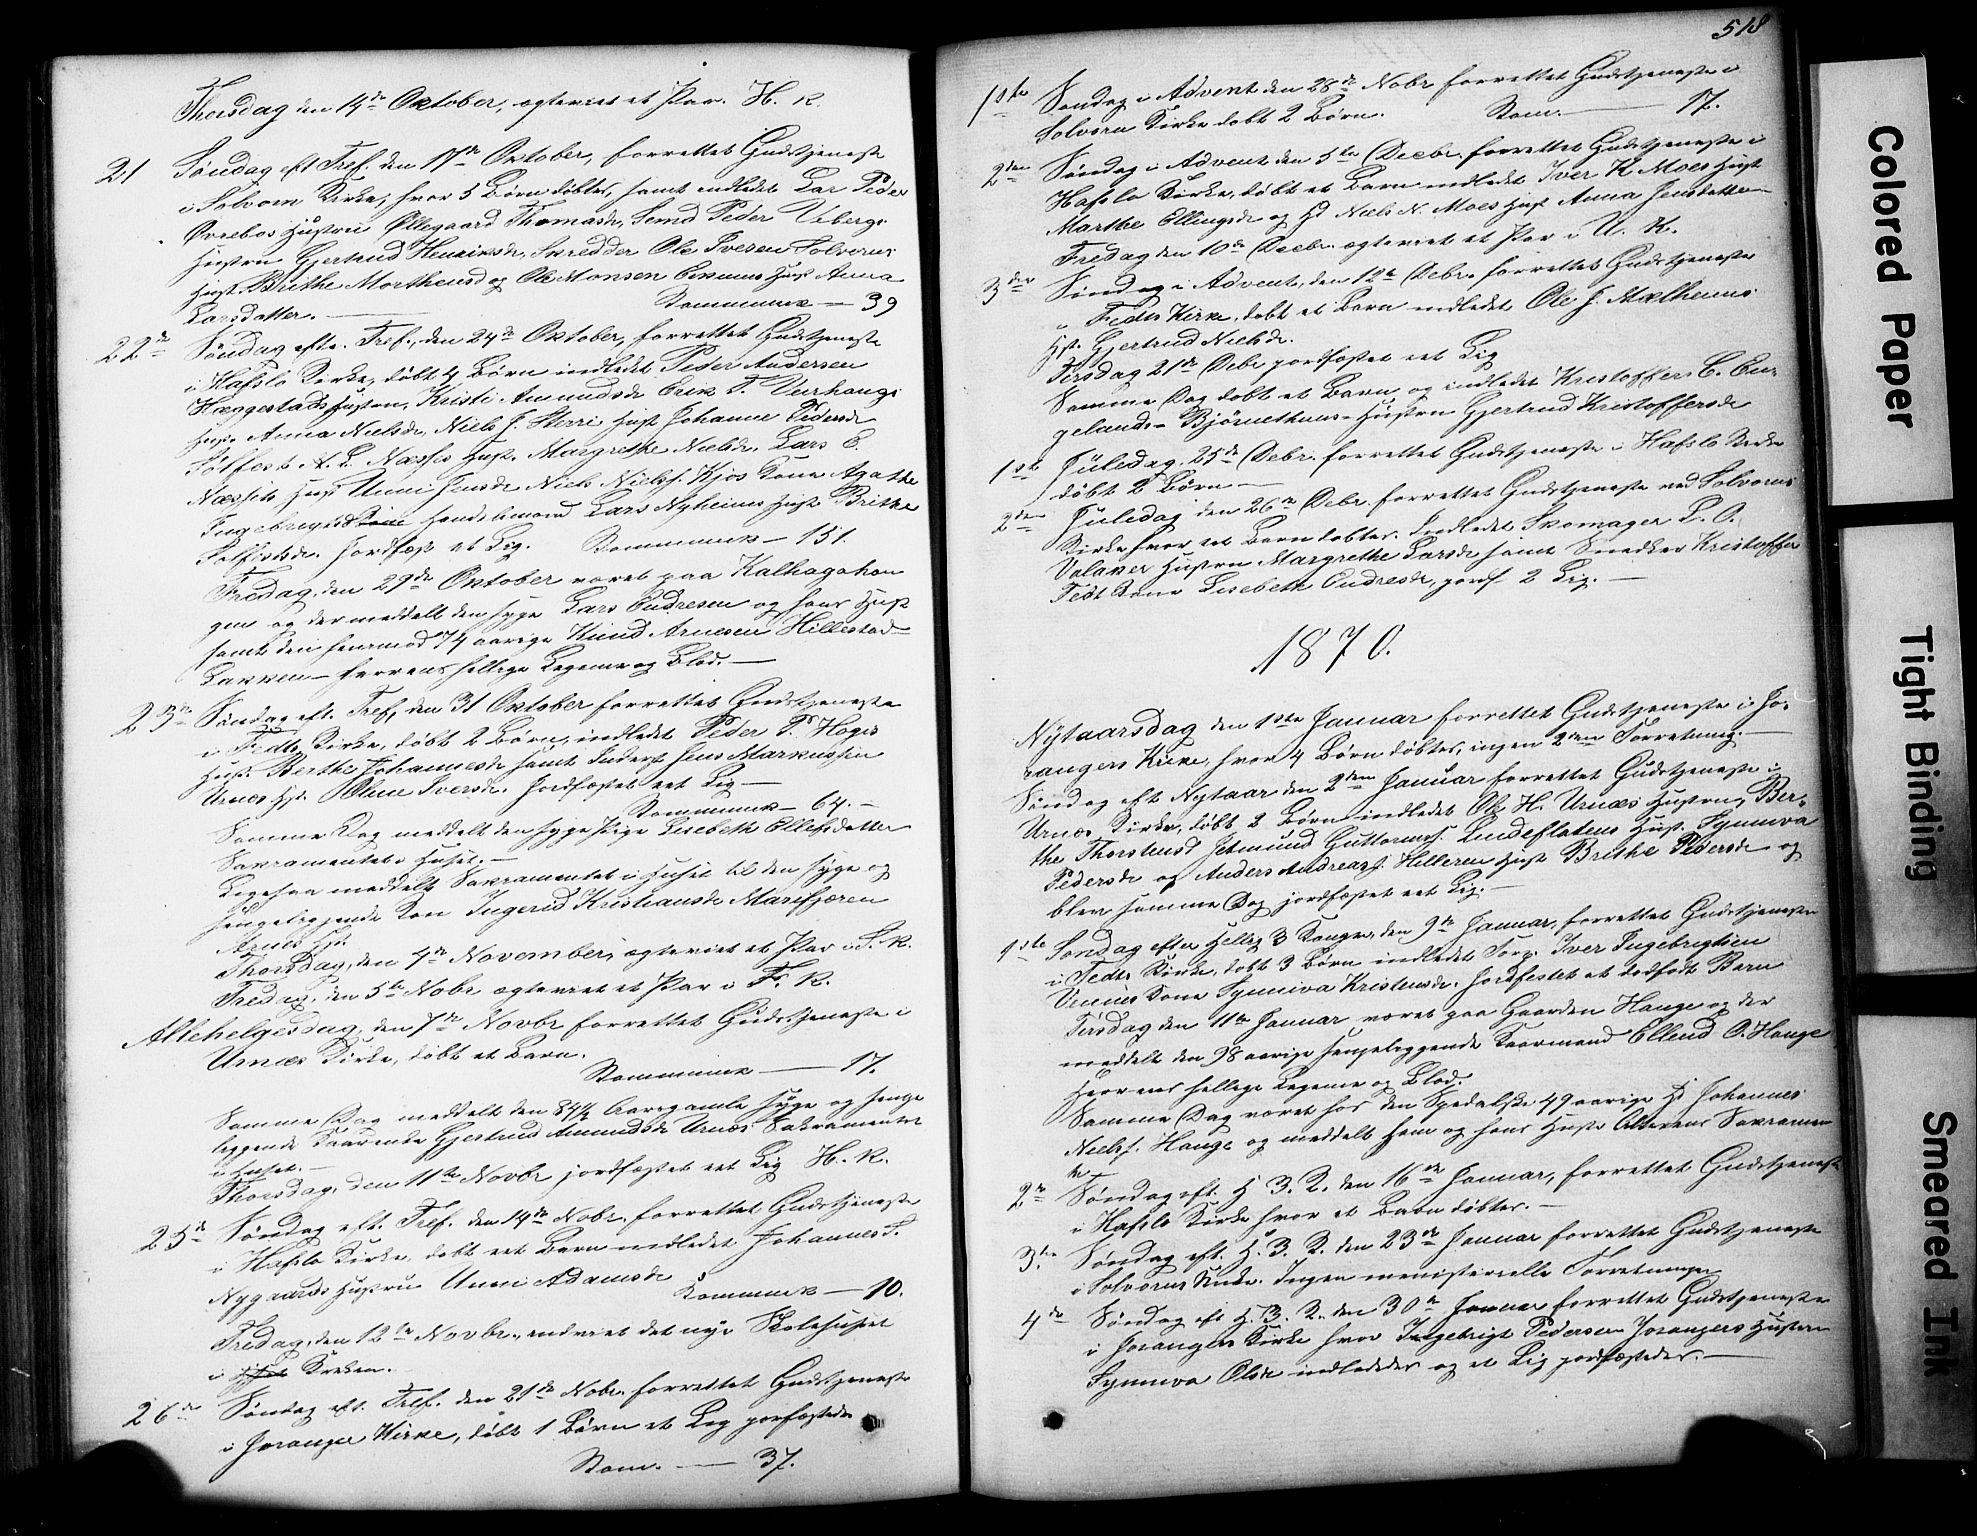 Thorsdag den 14de Oktober, ægteviet et Par. H. K.
21 Søndag eft Tref. den 17de Oktober, forrettet Gudstjeneste
i Solvorn Kirke, hvor 5 Børn døbtes, samt indledet Lar Peder
Øvrebøs Hustru Øllegaard Thomasdr, Smed Peder Vebergs
Hustru Gjertrud Henriksdr, Skredder Ole Iversen Solvorns
Hust. Brithe Morthensd og Ole Monsen Hust Anna
Larsdatter. — Kommunik — 39
22de Søndag efter Tref., den 24de Oktober, forrettet Gudstjeneste
i Hafslo Kirke, døbt 4 Børn indledet Peder Andersen
Hæggestads Hustru, Kristi Amundsdr Erik T. Veirhaugs
Hust. Anna Nielsdr, Niels J. Hust Johanne Pedersdr
Solfest A. L. Næsses Hust. Margrethe Nielsdr. Lars E.
Næsseth Hust Unni Jensdr Niels Nielss. Kjos Kone Agathe
Ingebrigtsd Handelsmand Lars Nyheims Hust Brithe
Solfestsdr. Jordfæst et Lig. Kommunik — 151.
Fredag, den 29de Oktober været paa Kalhagahau
gen og der meddelt den syge Lars Endresen og hans Hust
samt den henimod 74 aarige Knud Arnesen Hillestad
Bakken — Herrens hellige Legeme og Blod. —
23de Søndag eft. Tref, den 31 Oktober forrettet Gudstjeneste
i Fedts Kirke, døbt 2 Børn, indledet Peder P. Hoges
Hust. Berthe Johannesdr samt Inderst Jens Markussen
Urnes Hst. Oline Iversdr. Jordfæstet eet Lig —
Kommunik — 64. —
Samme Dag meddelt den syge Pige Lisebeth Ellefsdatter
Sakramentet i Huset. —
Ligesaa meddelt Sakramentet i Huset til den syge og
sengeliggende Kon Ingerid Kristiansdr Marifjæren
Thorsdag, den 4de November, ægteviet et Par i S. K.
Fredag, den 5te Nobr ægteviet et Par i F. K.
Allehelgesdag, den 7de Novbr forrettet Gudstjeneste i
Urnæs Kirke, døbt et Barn.
Kommunik — 17.
Samme Dag meddelt den 84½ Aarsgamle syge og senge
liggende Kaarenke Gjertrud Amundsdr Urnæs Sakramentet
i Huset. —
Thorsdag, den 11te Novbr jordfæstet eet Lig H. K.
25de Søndag eft. Tref. den 14de Nobr. forrettet Gudstjeneste
i Hafslo Kirke, døbt eet Barn indledet Johannes S.
Nygaards Hustru Unni Adamsdr Kommunik — 10.
Fredag, den 12te Novbr., indviet det nye Skolehuset
i Kreken.
26de Søndag eft. Tref. den 21de Nobr. forrettet Gudstjeneste
i Joranger Kirke, døbt 1 Børn et Lig jorfæstede
Kom. — 37.
518
1ste Søndag i Advent den 28de Nobr forrettet Gudstjeneste i
Solvorn Kirke døbt 2 Børn. Kom. — 17.
2den Søndag i Advent den 5te Decbr. forrettet Gudstjeneste i
Hafslo Kirke, døbt et Barn indledet Iver K Moes Hust
Marthe Ellingsdr og Gd Niels N. Moes Hust Anna Jensdatter
Fredag den 10de Decbr. ægteviet et Par i U. K.
3die Søndag i Advent, den 12te Debr. forrettet Gudstjeneste
i Fedts Kirke, døbt et Barn indledet Ole J. Mælheims
Hst. Gjertrud Nielsdr.
Tirsdag 21de Debr jordfæstet eet Lig
Samme Dag døbt et Barn og indledet Kristoffer C. Eu-
gelands- Bjørnethuns- Hustru Gjertrud Kristoffersdr
1ste Juledag 25de Debr. forrettet Gudstjeneste i Hafslo Kirke
døbt 2 Børn —
2den Juledag den 26de Debr. forrettet Gudstjeneste ved Solvorns
Kirke hvor eet Barn døbtes. Indledet Skomager L. O.
Volaker Hustru Margrethe Larsdr samt Snedker Kristoffer
Fedt Kone Lisebeth Endresdr, jordf 2 Lig. —
1870.
Nytaarsdag den 1ste Januar forrettet Gudstjeneste i Jo-
rangers Kirke, hvor 4 Børn døbtes, ingen anden Forretning. —
Søndag eft Nytaar den 2den Januar forrettet Gudstjeneste i
Urnæs Kirke, døbt 2 Børn indledet Ole H. Urnæs Hustru, Ber-
the Thorstensd Jetmund Guttormss. Lindeflatens Hust. Synneva
Pedersdr og Anders Andreass. Hilleren Hust Brithe Pedersdr og
blev samme Dag jordfæstet eet Lig. —
1ste Søndag efter Hellig 3 Konger, den 9de Januar, forrettet Gudstjeneste
i Fedts Kirke, døbt 3 Børn indledet Iver Ingebrigtsen
Urnes Kone Synneva Kristensdr. Jordfestet et dødfødt Barn
Tirsdag den 11te Januar været paa Gaarden Hauge og der
meddelt den 98 aarige sengeliggende Kaarmand Ellend O. Hauge
Herrens hellige Legeme og Blod.
Samme Dag været hos den Spedalske 49 aarige Gd Johannes
Nielss. Hauge og meddelt ham og hans Hustr Alterens Sakramen
te.
2de Søndag eft. H 3. K. den 16de Januar, forrettet Gudstjeneste
i Hafslo Kirke hvor et Barn døbtes. —
3die Søndag eft. H. 3. K. den 23de Januar forrettet Gudstjeneste
i Solvorns Kirke. Ingen ministerielle Forretninger
4de Søndag eft H. 3. K. den 30te Januar forrettet Gudstjeneste
i Jorangers Kirke hvor Ingebrigt Pedersen Jorangers Hustru
Synneva Olsdr indledtes og et Lig jordfæstedes. —
Colored Paper
Tight Binding
Smeared Ink